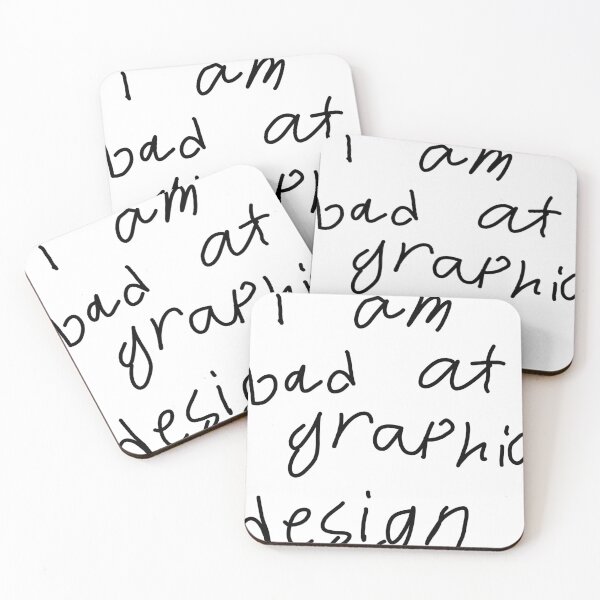 I am
bad at
I am
bad at
graphic
I am
bad at
graphic
design
I am
bad at
graphic
design